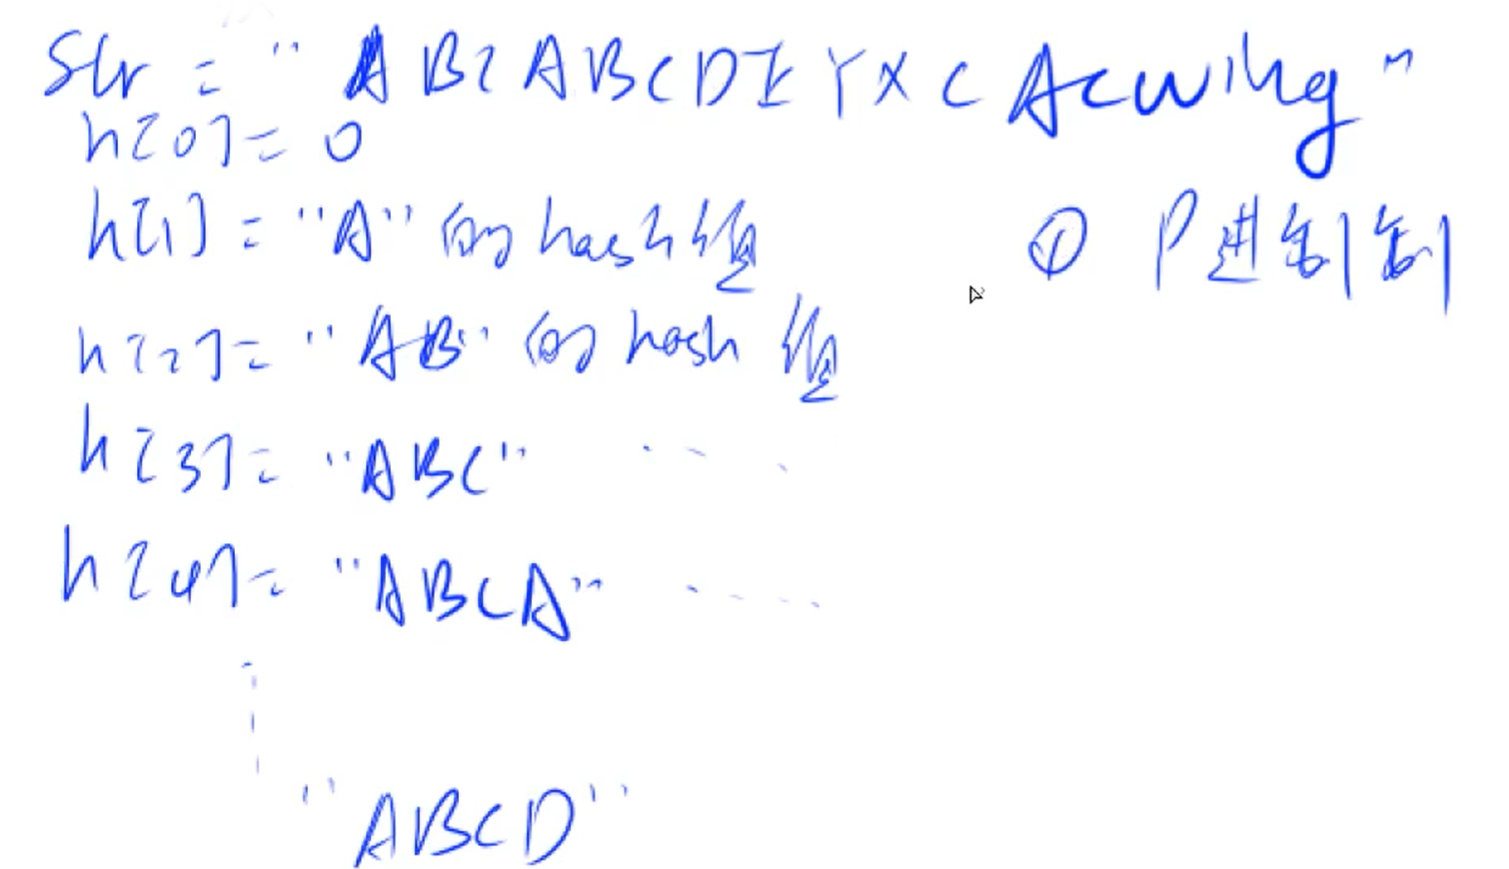 Str = "ABCABCDEYXCAcwing"
h[0] = 0
h[1] = "A" 的 hash 值
① P进制
h[2] = "AB" 的 hash 值
h[3] = "ABC" ...
h[4] = "ABCA" ....
"ABCD"